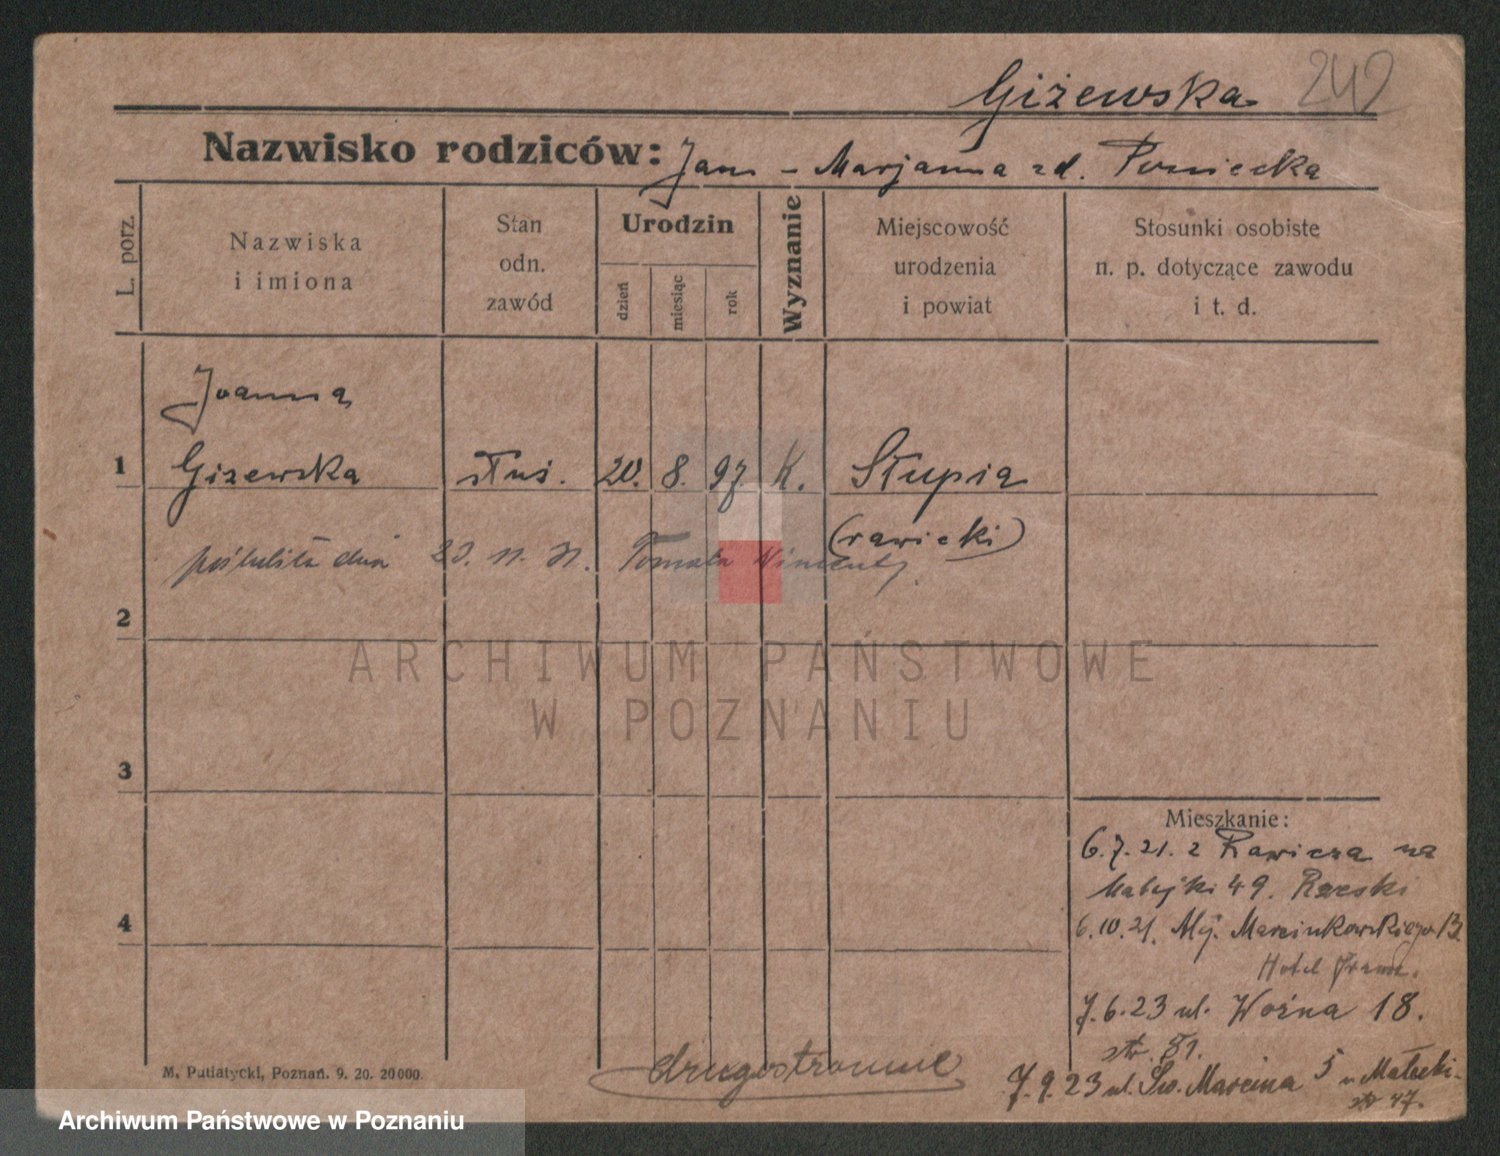 Giżewska 242
Nazwisko rodziców: Jan - Marjanna zd. Poniecka
L. porz.
Nazwiska
i imiona
Stan
odn.
zawód
Urodzin
dzień
miesiąc
rok
Wyznanie
Miejscowość
urodzenia
i powiat
Stosunki osobiste
n. p. dotyczące zawodu
i t. d.
Joanna
1 Giżewska służ. 20. 8. 97. K. Słupia
(rawicki)
poślubiła dnia 23. 11. 31. Tomala Wincenty
2
ARCHIWUM PAŃSTWOWE
W POZNANIU
3
4
Mieszkanie:
6.7.21. z Rawicza na
Matejki 49.
6.10.21. Alej. Marcinkowskiego 13
Hotel
7.6.23 ul. Woźna 18.
str. 81.
7.9.23 ul. Św. Marcina 5 u Małecki
str 47.
drugostronnie
M. Putiatycki, Poznań. 9. 20. 20000.
Archiwum Państwowe w Poznaniu